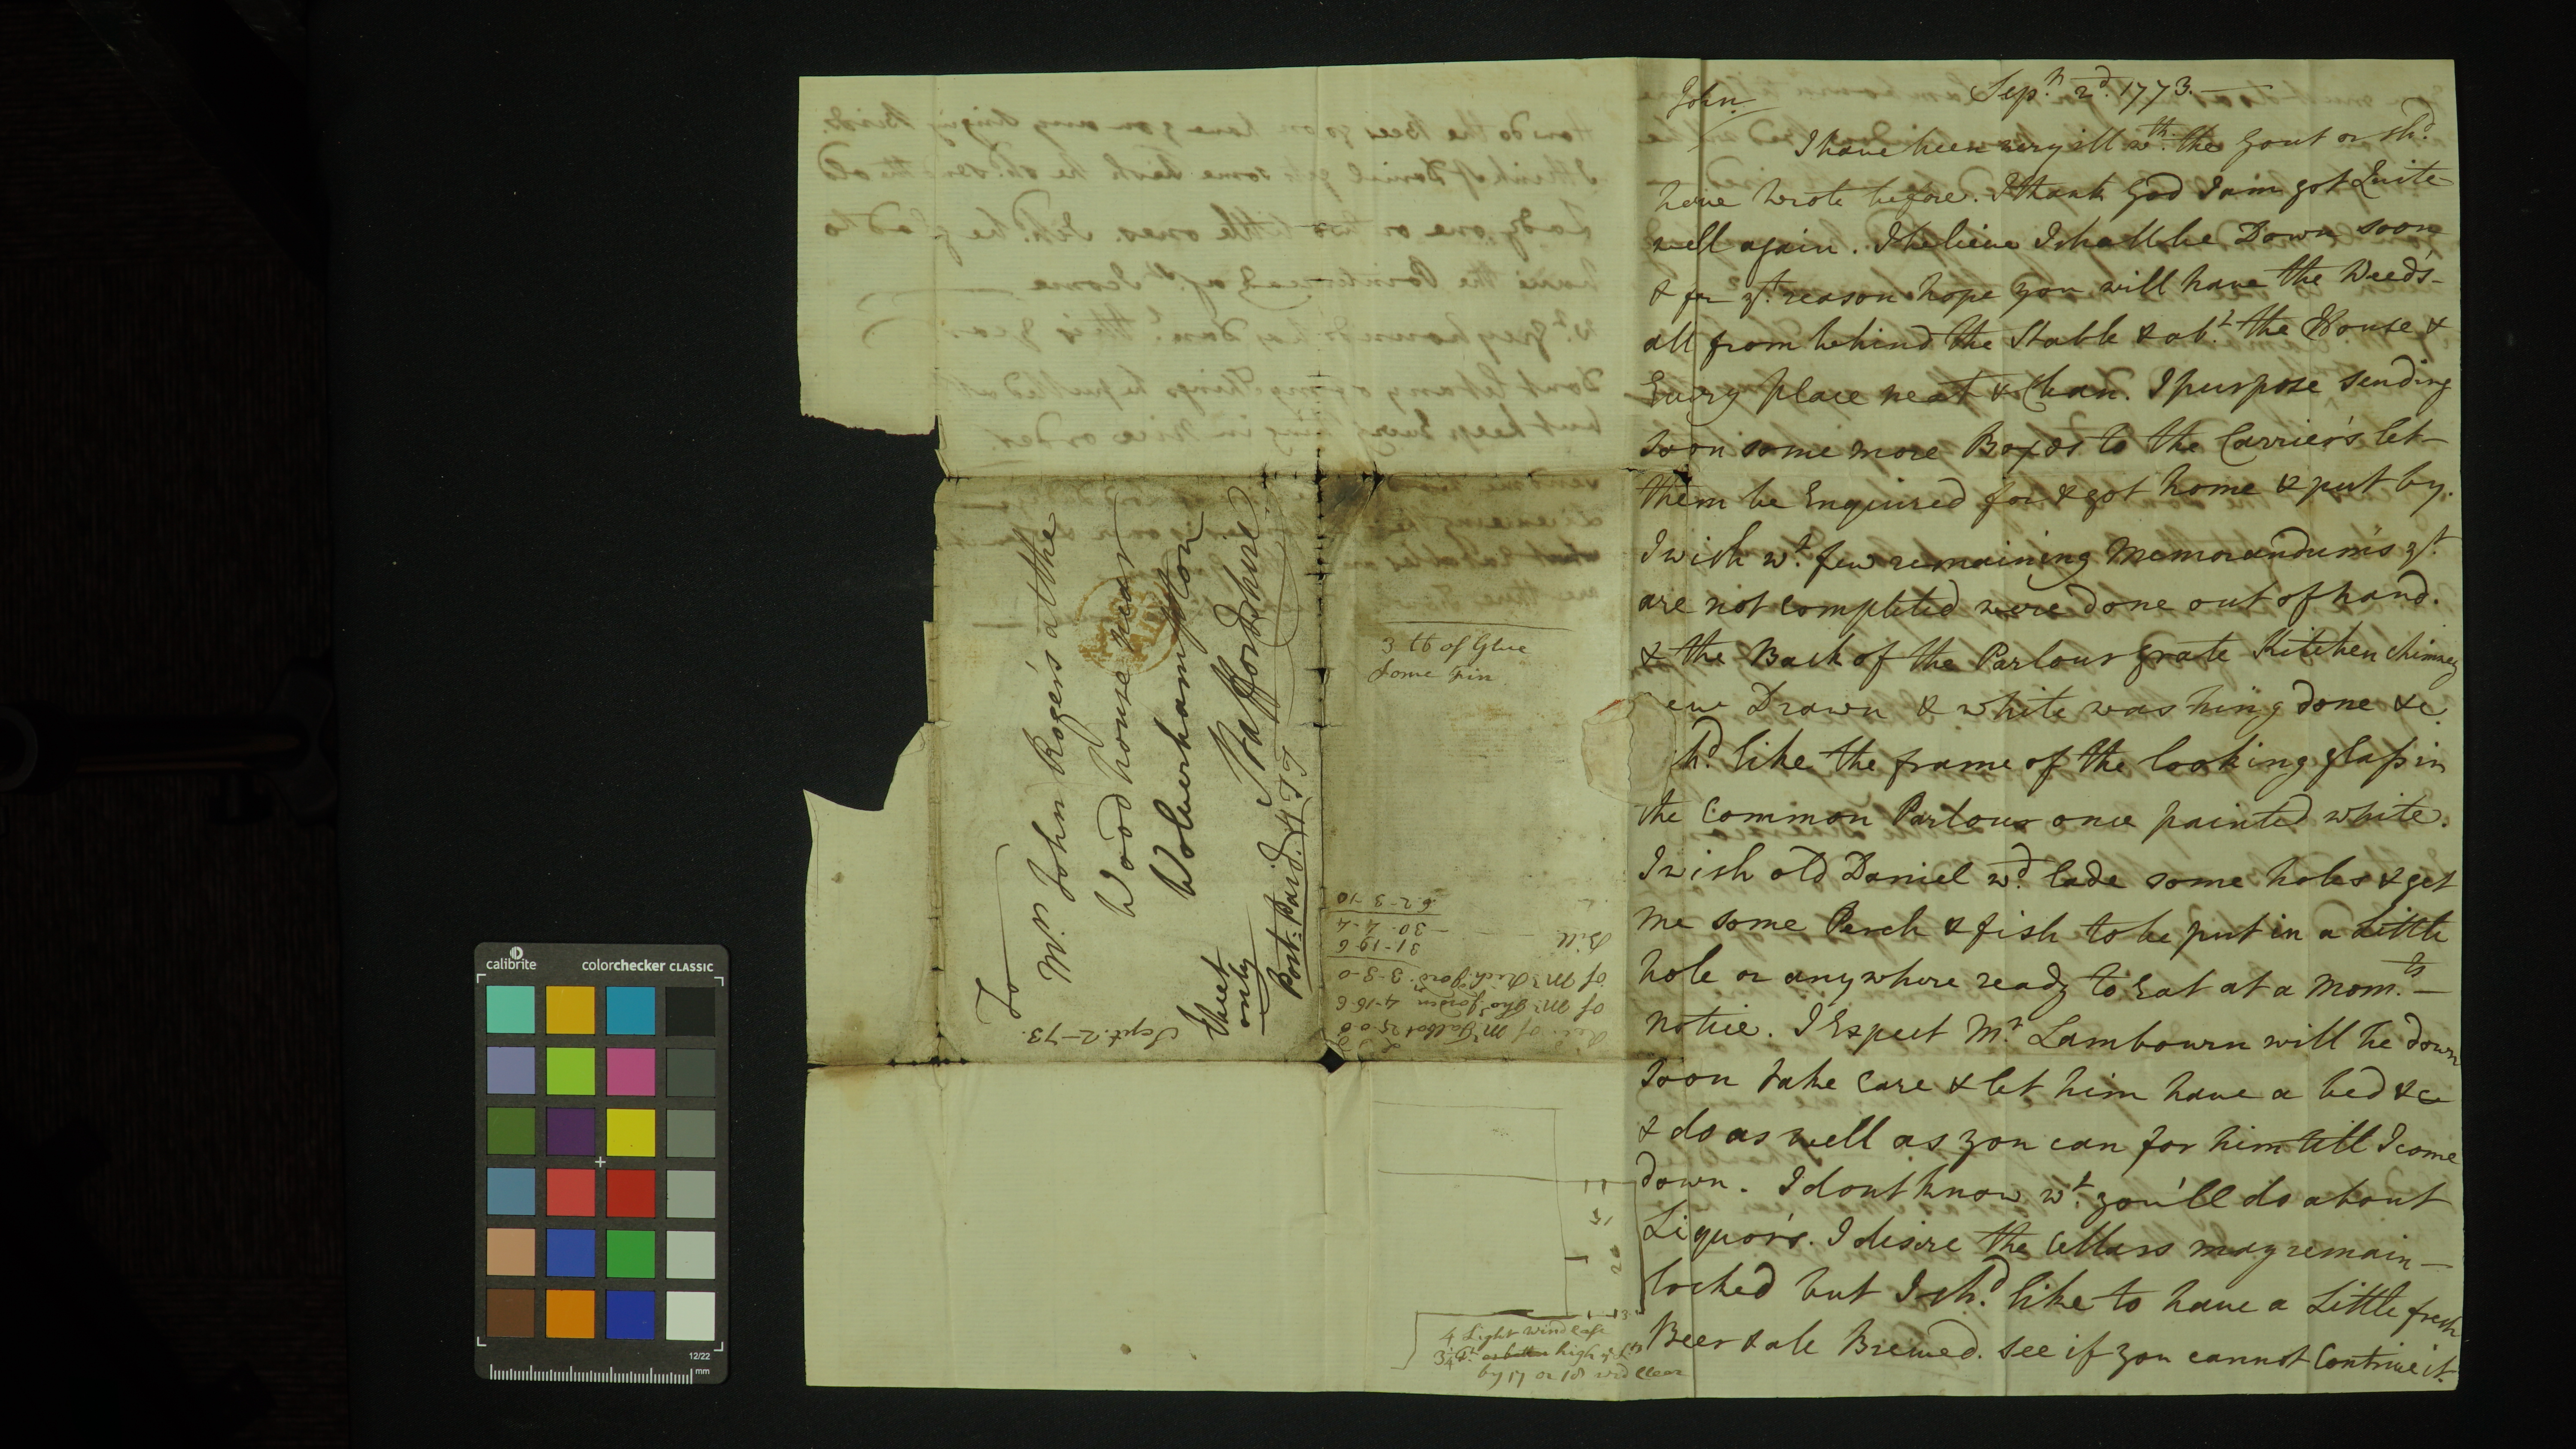 John
Sepr. 2d. 1773.
I have been very ill wth. the Gout or shd.
have wrote before. I thank God I am got Quite
well again. I believe I shall be Down soon
& for yt. reason hope you will have the Weed's
all from behind the Stable & abt. the House &
Every place neat & Clean. I purpose sending
soon some more Boxes to the Carrier's let
them be Enquired for & got home & put by.
I wish wt. few remaining Memorandum's yt.
are not completed were done out of hand.
& the Back of the Parlour grate Kitchen chimney
Drawn & white washing done &c.
hd. like the frame of the looking glass in
the Common Parlour once painted white.
I wish old Daniel wd. lade some holes & get
me some Perch & fish to be put in a Little
hole or any where ready to Eat at a Momts.
notice. I Expect Mr. Lambourn will be down
soon take Care & let him have a bed &c
& do as well as you can for him till I come
down. I dont know wt. you'll do about
Liquor's. I desire the Cellars may remain
locked but I shd. like to have a Little fresh
Beer & ale Brewed. see if you cannot Contrive it.
To
Mr. John Rogers at the
Woodhouse near
Wolverhampton
Staffordshire.
Sheet
only
Post: Paid.
Sept. 2-73.
3 lb of Glue
Some tin
of Mr Talbot 25-0-0
of Mr Tho Jordin 4-16-6
of Mr Pickford 3-3-0
31-19-6
Bill 30-4-4
62-3-10
15
20
4 Light wind case
3 1/4 ft. high
by 17 or 18 wd clear